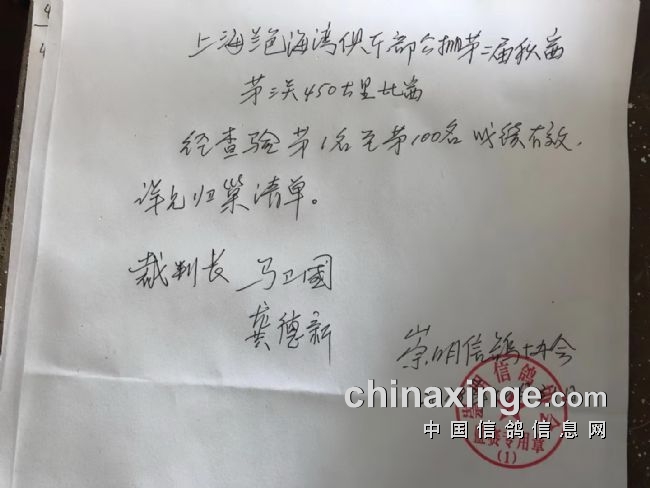 4
4
上海兰色海湾俱乐部公棚第二届秋季
第三关450公里比赛
经查验第1名至第100名成绩有效.
详见归巢清单。
裁判长 马卫國
龚德新
崇明信鸽协会
信鸽协会
专用章
(1)
chinaxinge.com
中国信鸽信息网